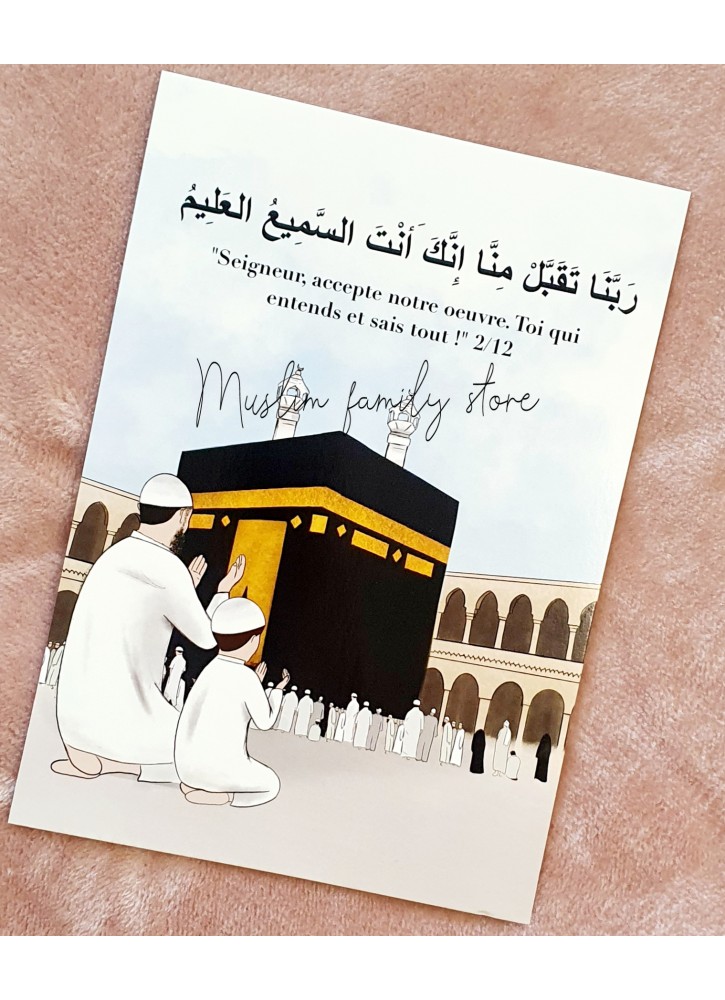 رَبَّنَا تَقَبَّلْ مِنَّا إِنَّكَ َأنْتَ السَّمِيعُ العَلِيمُ
"Seigneur, accepte notre oeuvre. Toi qui
entends et sais tout !" 2/12
Muslim family store